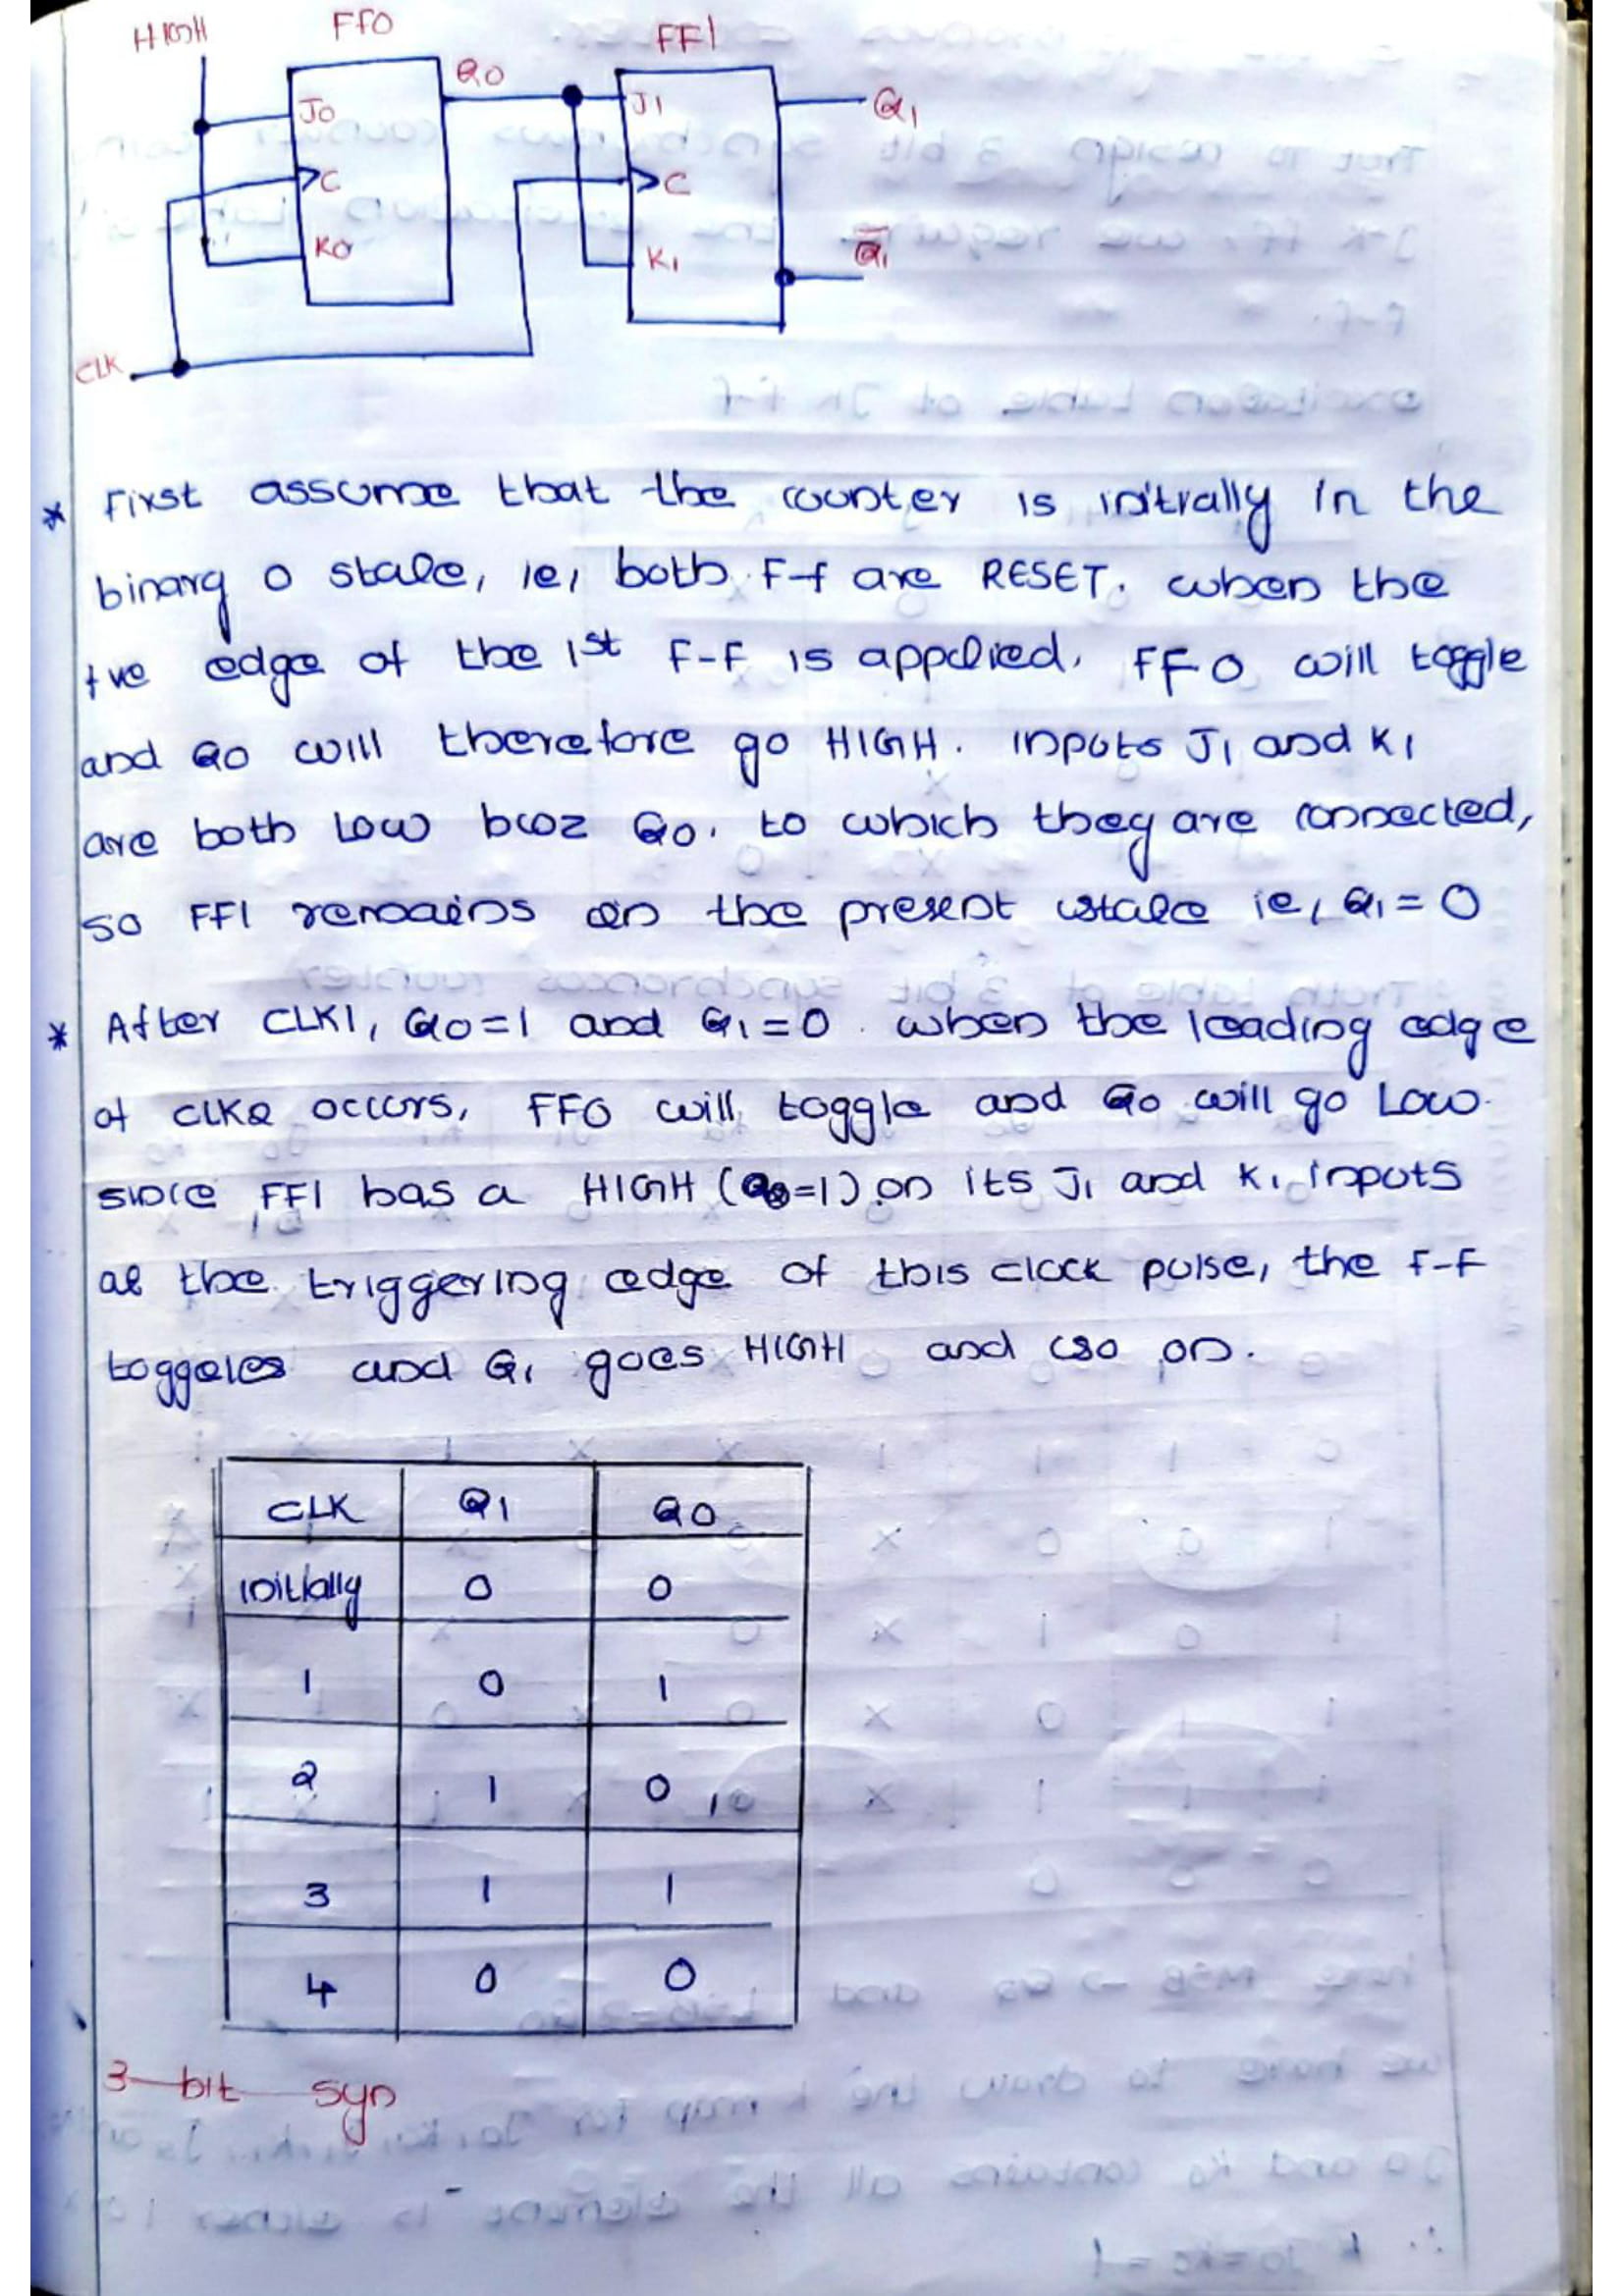 HIGH FF0 FF1
Q0
J0 J1 Q1
C C
K0 K1 Q̅1
CLK
* First assume that the counter is initially in the
binary 0 state, ie, both F-f are RESET. when the
+ve edge of the 1st F-F is appolied. FF0 will toggle
and Q0 will therefore go HIGH. inputs J1 and K1
are both Low bcoz Q0. to which they are connected,
so FF1 remains in the present state ie, Q1 = 0
* After CLK1, Q0=1 and Q1=0. when the leading edge
of CLK2 occurs, FF0 will toggle and Q0 will go Low.
since FF1 has a HIGH (Q0=1) on its J1 and K1 inputs
at the triggering edge of this clock pulse, the F-F
toggeles and Q1 goes HIGH and so on.
CLK Q1 Q0
initially 0 0
1 0 1
2 1 0
3 1 1
4 0 0
3-bit syn